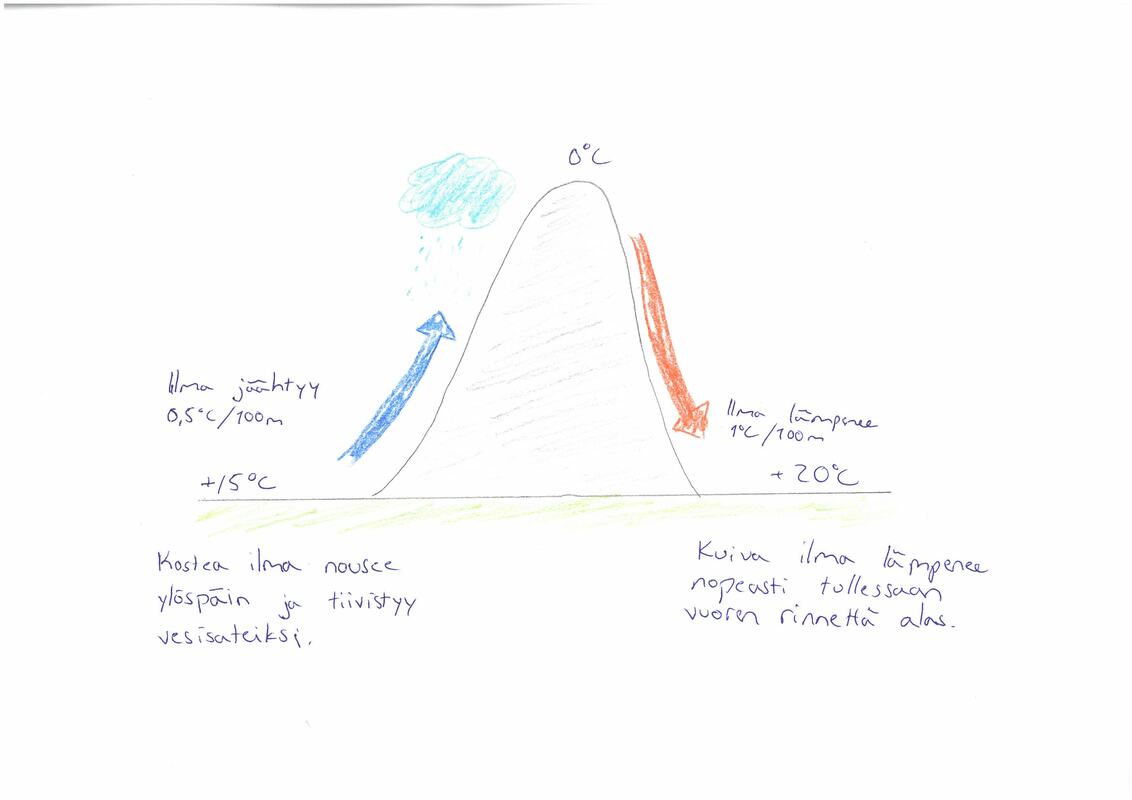 0°C
Ilma jäähtyy
0,5°C/100m
+15°C
Ilma lämpenee
1°C/100m
+20°C
Kostea ilma nousee
ylöspäin ja tiivistyy
vesisateiksi.
Kuiva ilma lämpenee
nopeasti tullessaan
vuoren rinnettä alas.